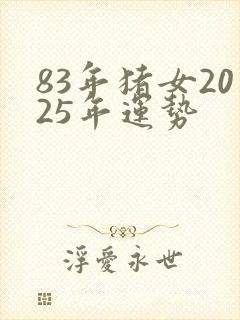 83年猪女20
25年運勢
浮愛永世